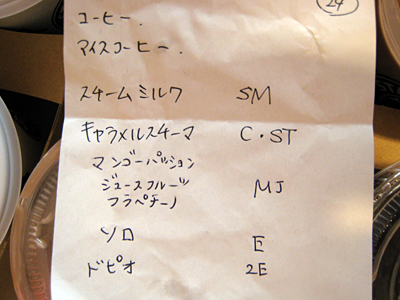 24
コーヒー.
アイスコーヒー.
スチームミルク SM
キャラメルスチーマ C・ST
マンゴーパッション
ジュースフルーツ MJ
フラペチーノ
ソロ E
ドピオ 2E